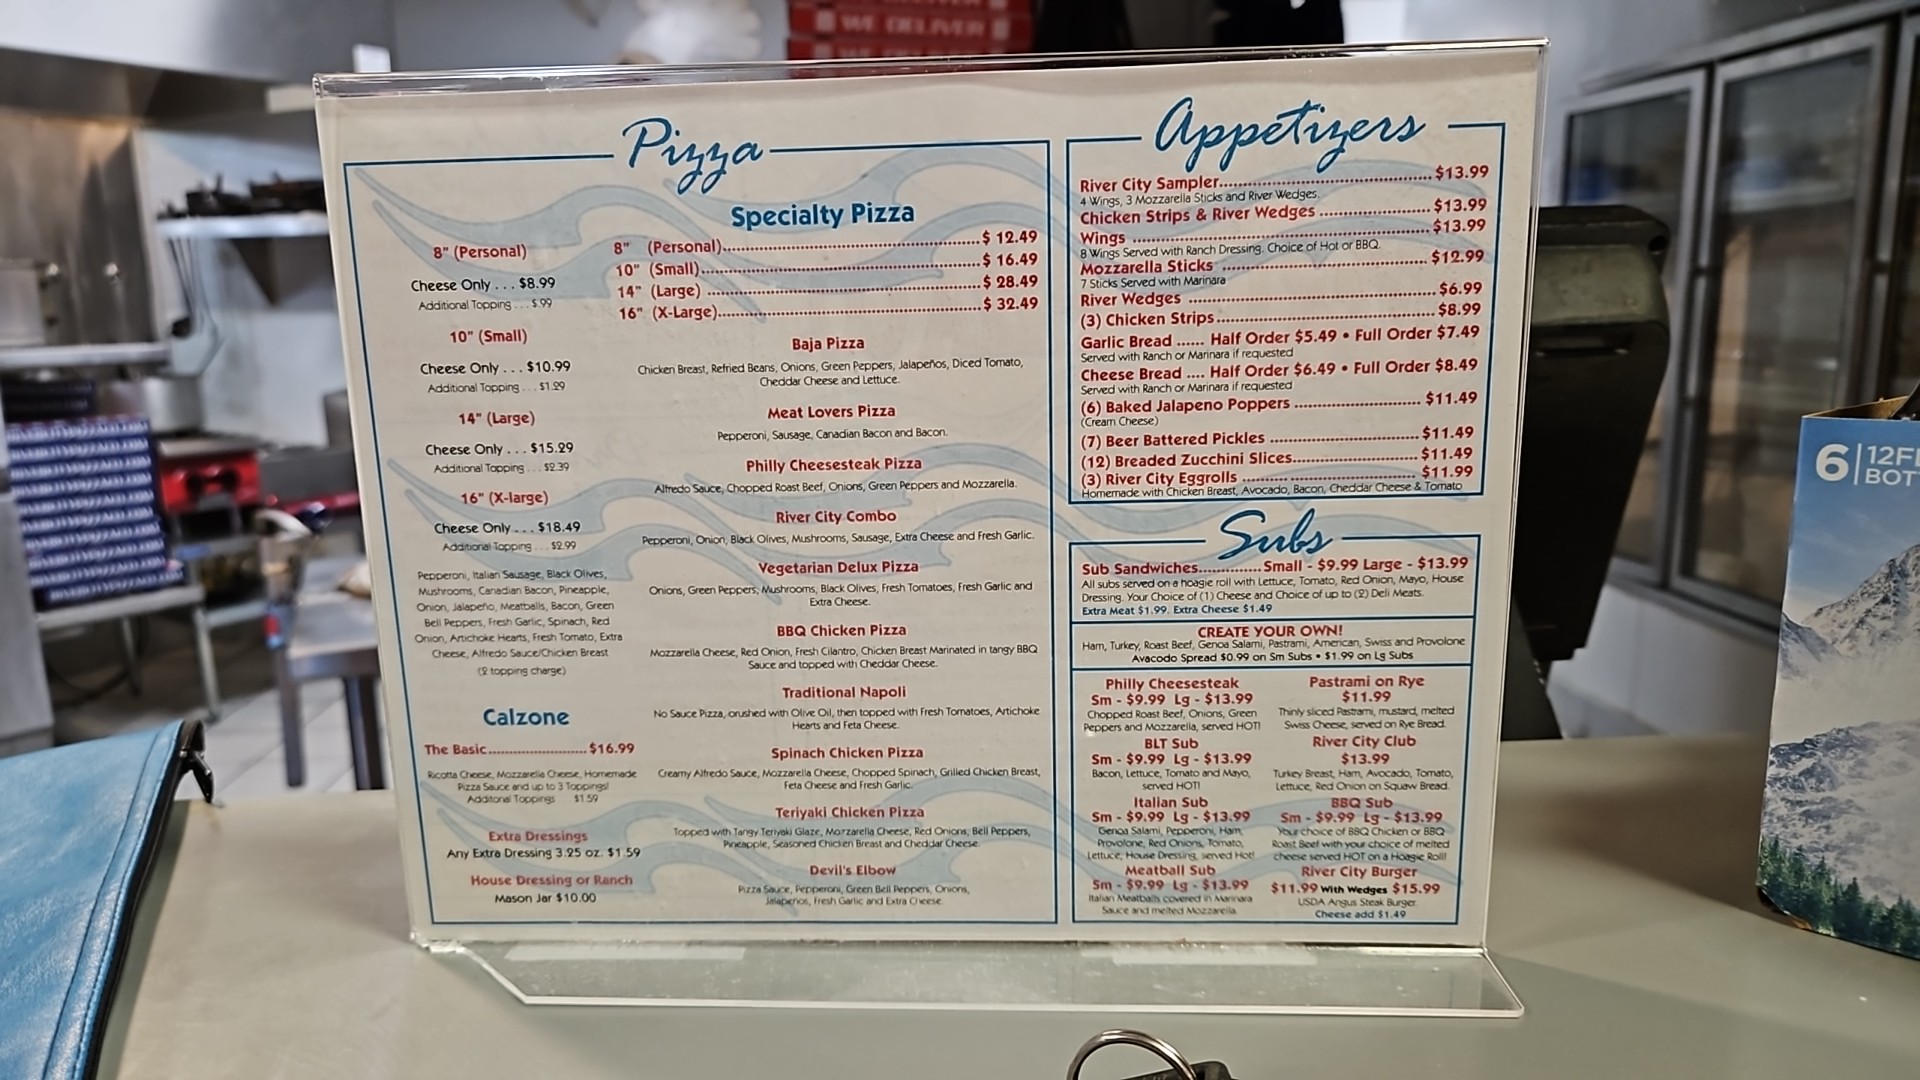 WE DELIVER
Pizza
8" (Personal)
Cheese Only . . . $8.99
Additional Topping . . . $.99
10" (Small)
Cheese Only . . . $10.99
Additional Topping . . . $1.29
14" (Large)
Cheese Only . . . $15.29
Additional Topping . . . $2.39
16" (X-large)
Cheese Only . . . $18.49
Additional Topping . . . $2.99
Pepperoni, Italian Sausage, Black Olives,
Mushrooms, Canadian Bacon, Pineapple,
Onion, Jalapeño, Meatballs, Bacon, Green
Bell Peppers, Fresh Garlic, Spinach, Red
Onion, Artichoke Hearts, Fresh Tomato, Extra
Cheese, Alfredo Sauce/Chicken Breast
(2 topping charge)
Calzone
The Basic............................$16.99
Ricotta Cheese, Mozzarella Cheese, Homemade
Pizza Sauce and up to 3 Toppings!
Additonal Toppings $1.59
Extra Dressings
Any Extra Dressing 3.25 oz. $1.59
House Dressing or Ranch
Mason Jar $10.00
Specialty Pizza
8" (Personal)............................$ 12.49
10" (Small)............................$ 16.49
14" (Large)............................$ 28.49
16" (X-Large)............................$ 32.49
Baja Pizza
Chicken Breast, Refried Beans, Onions, Green Peppers, Jalapeños, Diced Tomato,
Cheddar Cheese and Lettuce.
Meat Lovers Pizza
Pepperoni, Sausage, Canadian Bacon and Bacon.
Philly Cheesesteak Pizza
Alfredo Sauce, Chopped Roast Beef, Onions, Green Peppers and Mozzarella.
River City Combo
Pepperoni, Onion, Black Olives, Mushrooms, Sausage, Extra Cheese and Fresh Garlic.
Vegetarian Delux Pizza
Onions, Green Peppers, Mushrooms, Black Olives, Fresh Tomatoes, Fresh Garlic and
Extra Cheese.
BBQ Chicken Pizza
Mozzarella Cheese, Red Onion, Fresh Cilantro, Chicken Breast Marinated in tangy BBQ
Sauce and topped with Cheddar Cheese.
Traditional Napoli
No Sauce Pizza, crushed with Olive Oil, then topped with Fresh Tomatoes, Artichoke
Hearts and Feta Cheese.
Spinach Chicken Pizza
Creamy Alfredo Sauce, Mozzarella Cheese, Chopped Spinach, Grilled Chicken Breast,
Feta Cheese and Fresh Garlic.
Teriyaki Chicken Pizza
Topped with Tangy Teriyaki Glaze, Mozzarella Cheese, Red Onions, Bell Peppers,
Pineapple, Seasoned Chicken Breast and Cheddar Cheese.
Devil's Elbow
Pizza Sauce, Pepperoni, Green Bell Peppers, Onions,
Jalapeños, Fresh Garlic and Extra Cheese.
Appetizers
River City Sampler............................$13.99
4 Wings, 3 Mozzarella Sticks and River Wedges.
Chicken Strips & River Wedges ............................$13.99
Wings ............................$13.99
8 Wings Served with Ranch Dressing. Choice of Hot or BBQ.
Mozzarella Sticks ............................$12.99
7 Sticks Served with Marinara
River Wedges ............................$6.99
(3) Chicken Strips............................$8.99
Garlic Bread ...... Half Order $5.49 • Full Order $7.49
Served with Ranch or Marinara if requested
Cheese Bread .... Half Order $6.49 • Full Order $8.49
Served with Ranch or Marinara if requested
(6) Baked Jalapeno Poppers ............................$11.49
(Cream Cheese)
(7) Beer Battered Pickles ............................$11.49
(12) Breaded Zucchini Slices............................$11.49
(3) River City Eggrolls ............................$11.99
Homemade with Chicken Breast, Avocado, Bacon, Cheddar Cheese & Tomato
Subs
Sub Sandwiches..............Small - $9.99 Large - $13.99
All subs served on a hoagie roll with Lettuce, Tomato, Red Onion, Mayo, House
Dressing. Your Choice of (1) Cheese and Choice of up to (2) Deli Meats.
Extra Meat $1.99. Extra Cheese $1.49
CREATE YOUR OWN!
Ham, Turkey, Roast Beef, Genoa Salami, Pastrami, American, Swiss and Provolone
Avacodo Spread $0.99 on Sm Subs • $1.99 on Lg Subs
Philly Cheesesteak
Sm - $9.99 Lg - $13.99
Chopped Roast Beef, Onions, Green
Peppers and Mozzarella, served HOT!
BLT Sub
Sm - $9.99 Lg - $13.99
Bacon, Lettuce, Tomato and Mayo,
served HOT!
Italian Sub
Sm - $9.99 Lg - $13.99
Genoa Salami, Pepperoni, Ham,
Provolone, Red Onions, Tomato,
Lettuce, House Dressing, served Hot!
Meatball Sub
Sm - $9.99 Lg - $13.99
Italian Meatballs covered in Marinara
Sauce and melted Mozzarella.
Pastrami on Rye
$11.99
Thinly sliced Pastrami, mustard, melted
Swiss Cheese, served on Rye Bread.
River City Club
$13.99
Turkey Breast, Ham, Avocado, Tomato,
Lettuce, Red Onion on Squaw Bread.
BBQ Sub
Sm - $9.99 Lg - $13.99
Your choice of BBQ Chicken or BBQ
Roast Beef with your choice of melted
cheese served HOT on a Hoagie Roll!
River City Burger
$11.99 With Wedges $15.99
USDA Angus Steak Burger.
Cheese add $1.49
6 12FL
BOT